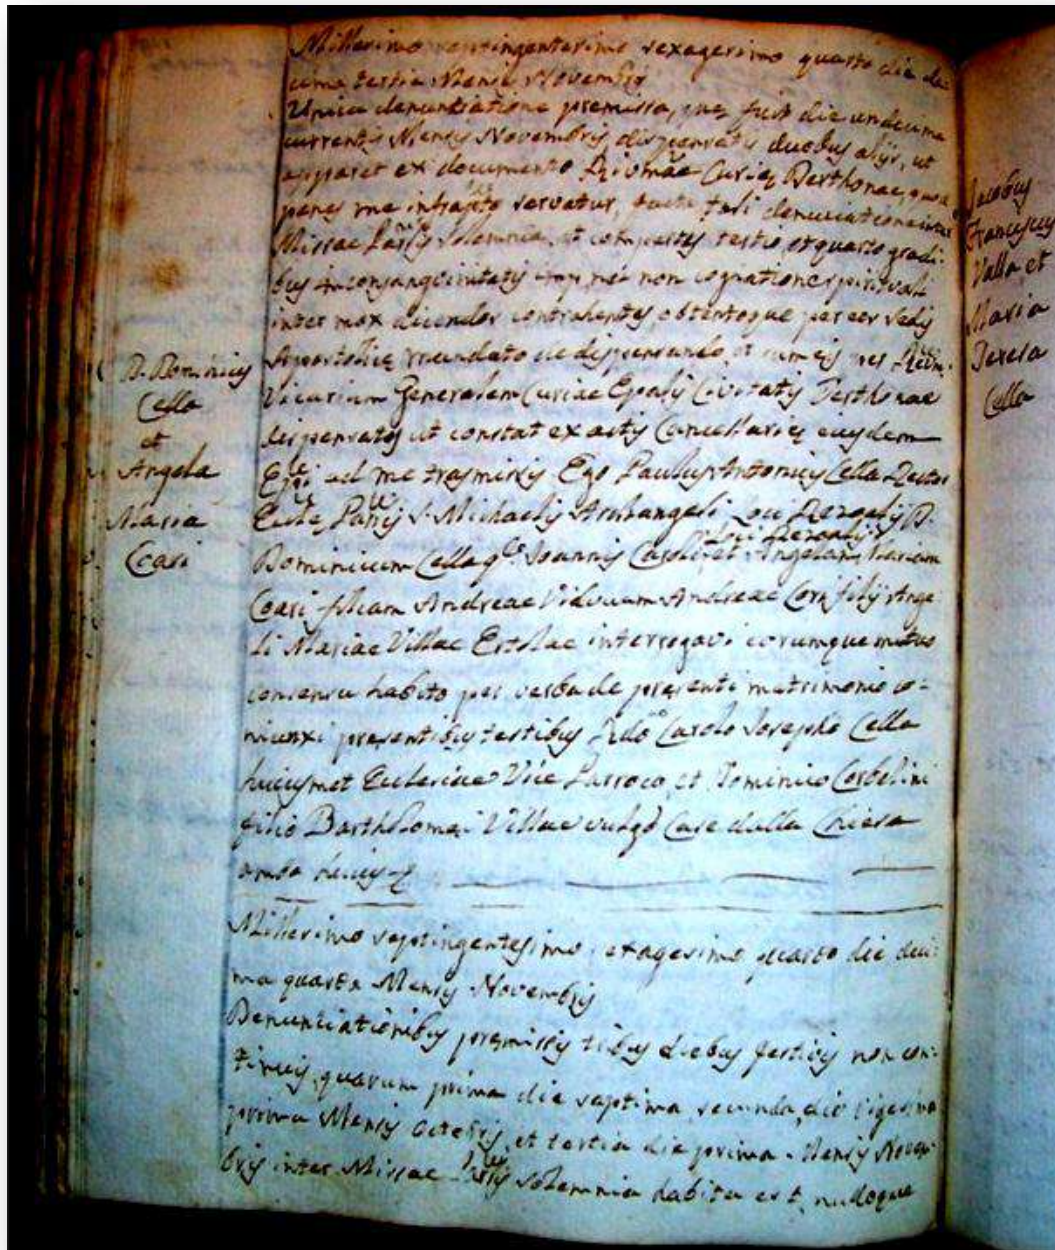 Millesimo septingentesimo sexagesimo quarto die de-
cima tertia Mensis Novembris
Unica denuntiatione premissa, que fuit die undecima
currentis Mensis Novembris, dispensatis duobus alijs, ut
apparet ex documento Curiae Derthonae, quod
penes me servatur, facta tali denunciatione inter
Missae solemnia, et compertis tertio et quarto gradi-
bus consanguinitatis non cognatione spirituali
inter mox dicendos contrahentes, obtentoque per eos Sedis
Apostolicae mandato de dispensando, et cum eis per
Vicarium Generalem Curiae Epalis Civitatis Derthonae
dispensatis ut constat ex actis Cancellariae eiusdem
ad me trasmissis Ego Paulus Antonius Cella Rector
S. Michaelis Archangeli Loci D.
Dominicum Cella Joannis Caroli, et Angelam Mariam
Coari filiam Andreae Viduam Andreae filij Ange-
li Mariae Villae interrogavi eorumque mutuo
consensu habito per verba de presenti matrimonio co-
niunxi presentibus testibus Carolo Josepho Cella
huiusmet Ecclesiae Vice Parroco, et Dominico Corbelini
filio Bartholomei Villae vulgo Case dalla Chiesa
ambo huius
D. Dominicus
Cella
et
Angela
Maria
Coari
Millesimo septingentesimo sexagesimo quarto die deci-
ma quarta Mensis Novembris
Denuntiationibus premissis tribus diebus festivis non con-
tinuis, quarum prima die septima, secunda, die vigesima
prima Mensis Octobris, et tertia die prima Mensis Novem-
bris inter Missae solemnia habita est, nulloque
Jacobus
Franciscus
Valla, et
Maria
Teresa
Cella